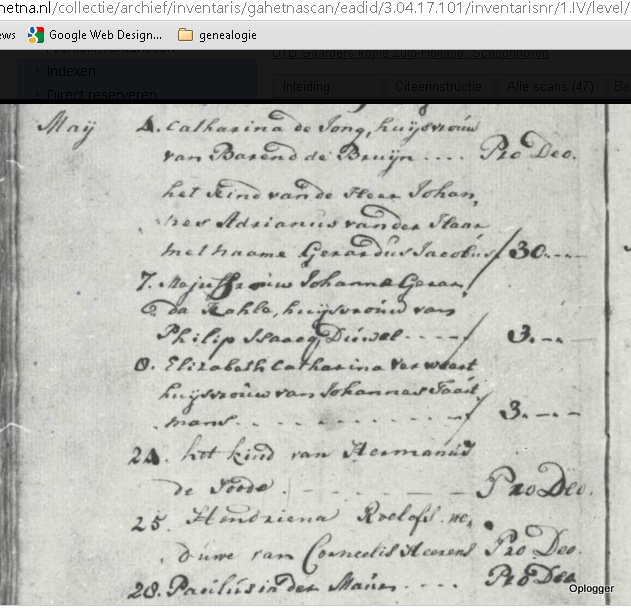 hetna.nl/collectie/archief/inventaris/gahetnascan/eadid/3.04.17.101/inventarisnr/1.IV/level/
ws Google Web Design... genealogie
DTB Gaarders kopie Zuid-Holland, Schoonhoven
Indexen
Inleiding Citeerinstructie Alle scans (47) Be
Direct reserveren
Maÿ 4. Catharina de Jong, huÿsvroúw
van Barend de Bruÿn .... Pro Deo.
het Kind van de Heer Johan,
nes Adrianus van der Haar
met naame Gerardús Jacobús / 30.---
7. Majuffroúw Johanna Gerar,
da Kahle, huÿsvroúw van
Philip Isaacq Dúwel ----- / 3.---
8. Elizabeth Catharina verweert
huÿsvroúw van Johannes Taat
mans . . . . . . . . . . / 3.---
24. het kind van Hermanús
de Joode . - - - - Pro Deo.
25. Hendriena Roelofs. we,
dúwe van Cornelis Heerens Pro Deo.
28. Paúlús in der Maúr ... Pro Deo
Oplogger